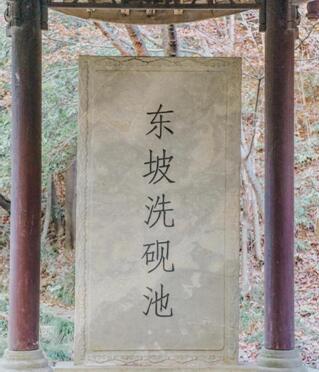 东坡洗砚池